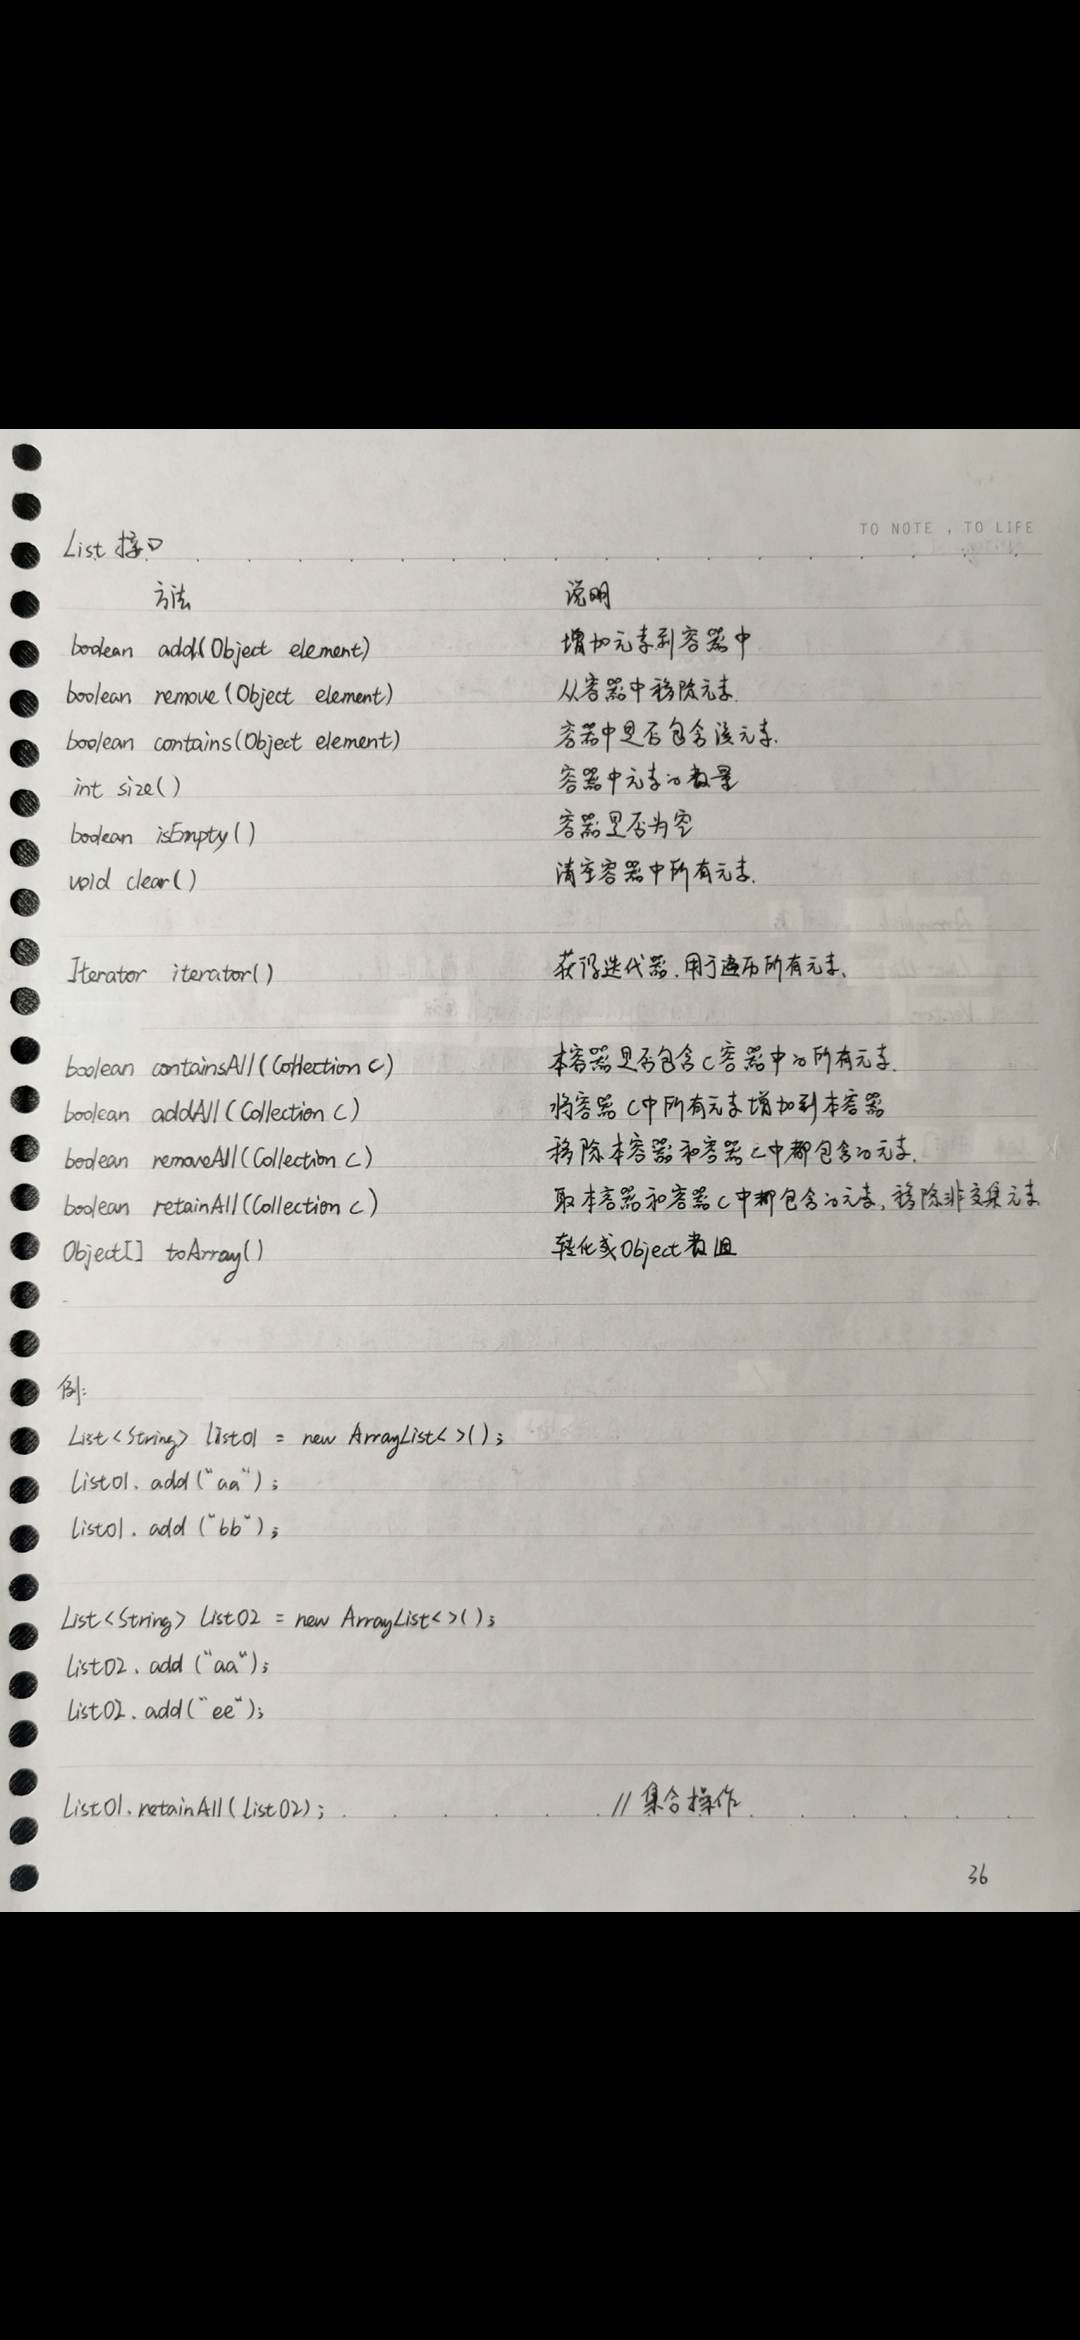 TO NOTE , TO LIFE
List 接口
方法 说明
boolean add(Object element) 增加元素到容器中
boolean remove(Object element) 从容器中移除元素.
boolean contains(Object element) 容器中是否包含该元素.
int size() 容器中元素的数量
boolean isEmpty() 容器是否为空
void clear() 清空容器中所有元素.
Iterator iterator() 获得迭代器,用于遍历所有元素.
boolean containsAll(Collection c) 本容器是否包含c容器中的所有元素.
boolean addAll(Collection c) 将容器c中所有元素增加到本容器
boolean removeAll(Collection c) 移除本容器和容器c中都包含的元素.
boolean retainAll(Collection c) 取本容器和容器c中都包含的元素,移除非交集元素
Object[] toArray() 转化成Object数组
例:
List<String> list01 = new ArrayList<>();
list01.add("aa");
list01.add("bb");
List<String> list02 = new ArrayList<>();
list02.add("aa");
list02.add("ee");
list01.retainAll(list02); //集合操作
36